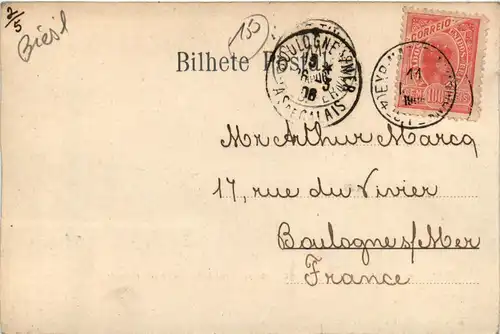 2/5
155
Bilhete Postal
BOULOGNE-S-MER
PAS-DE-CALAIS
CORREIO
100
11
Mr Arthur Marcq
17, rue du Vivier
Boulogne s/Mer
France